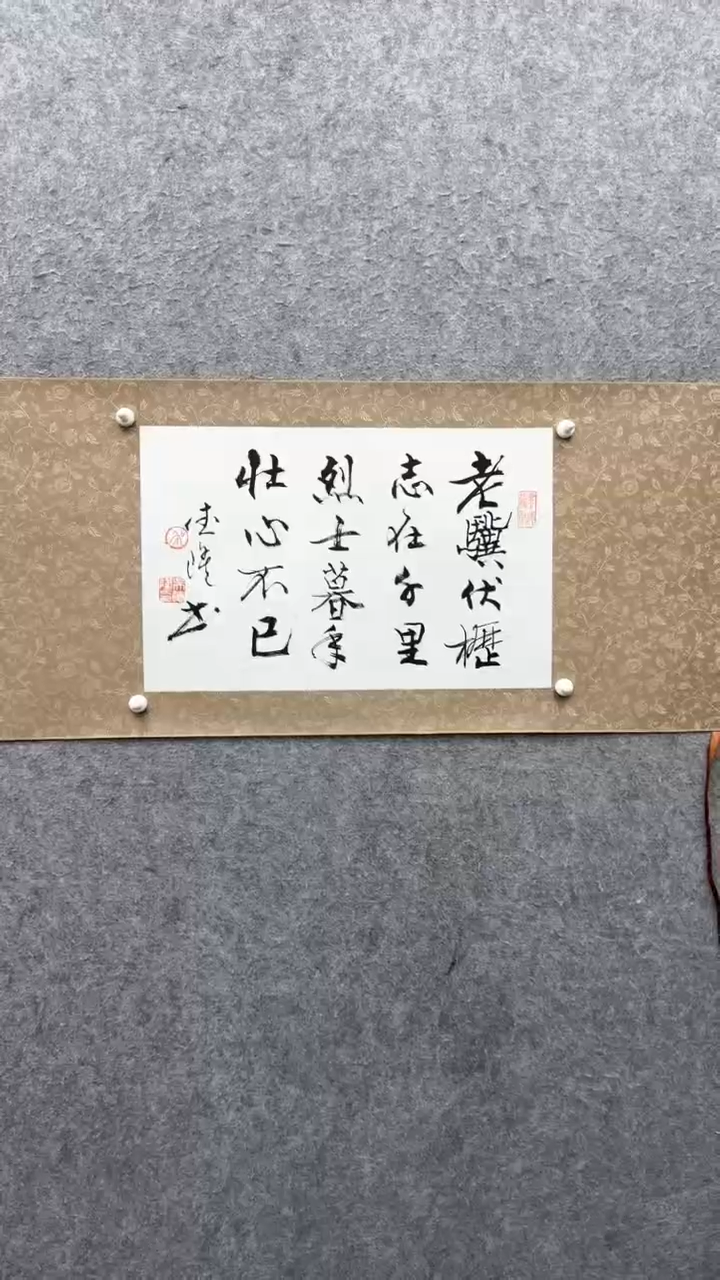 老驥伏櫪
志在千里
烈士暮年
壯心不已
書